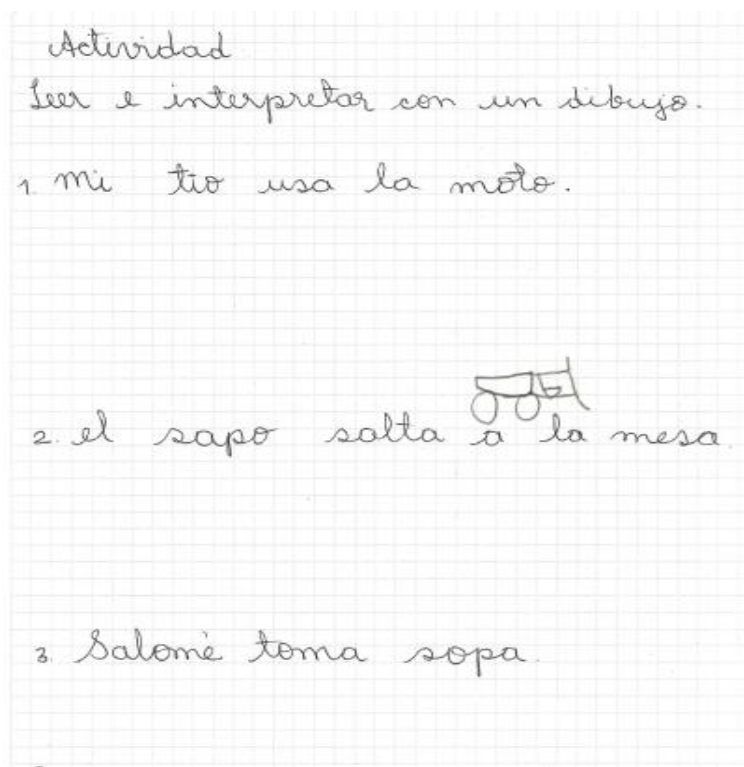 Actividad
Leer e interpretar con un dibujo.
1. Mi tio usa la moto.
2. el sapo salta a la mesa
3. Salomè toma sopa.